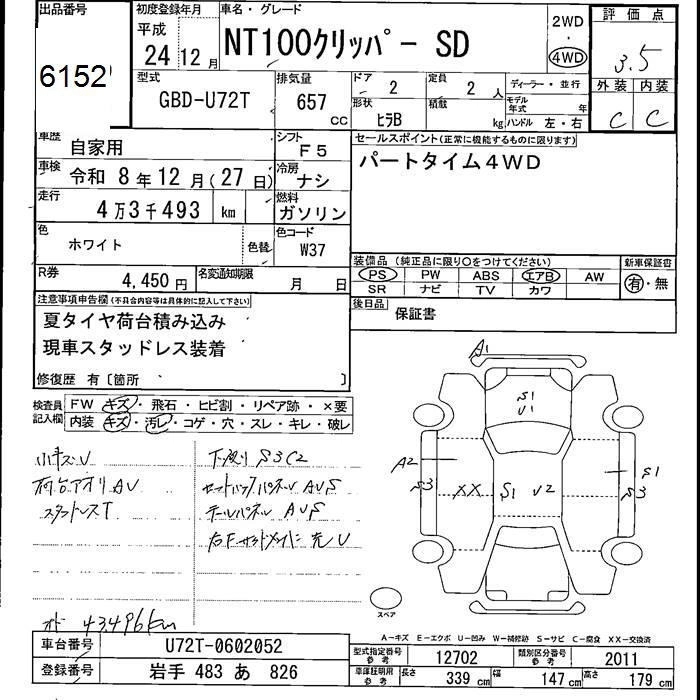 出品番号
6152
初度登録年月
平成
24年12月
車名・グレード
NT100クリッパー SD
2WD
・
4WD
評価点
3.5
外装 内装
C C
型式
GBD-U72T
排気量
657
CC
ドア
2
定員
2人
形状
ヒラB
積載
kg
ディーラー・並行
モデル年式 年
ハンドル 左・右
車歴
自家用
シフト
F5
車検
令和 8年12月(27日)
冷房
ナシ
走行
4万3千493 km
燃料
ガソリン
色
ホワイト
色替
色コード
W37
セールスポイント(正常に機能するものに限ります)
パートタイム4WD
R券
4,450円
名変通知期限
月 日
装備品 (純正品に限り○をつけてください)
PS PW ABS エアB AW
SR ナビ TV カワ
新車保証書
有・無
後日品
保証書
注意事項申告欄(不具合内容等は具体的に記入して下さい)
夏タイヤ荷台積み込み
現車スタッドレス装着
修復歴 有〔箇所 〕
検査員記入欄
FW キズ・飛石・ヒビ割・リペア跡・×要
内装 キズ・汚レ・コゲ・穴・スレ・キレ・破レ
小キズU
荷台アオリAU
スタットレスT
下廻り S3C2
セットバックパネル AUS
テールパネル AUS
オド 43496km
A1
S1
U1
A2
S3
XX
S1
U2
S1
S3
スペア
A-キズ E-エクボ U-凹み W-補修跡 S-サビ C-腐食 XX-交換済
車台番号
U72T-0602052
登録番号
岩手 483 あ 826
型式指定番号
参考
12702
類別区分番号
参考
2011
車庫証明用
参考
長さ 339 cm
幅 147 cm
高さ 179 cm